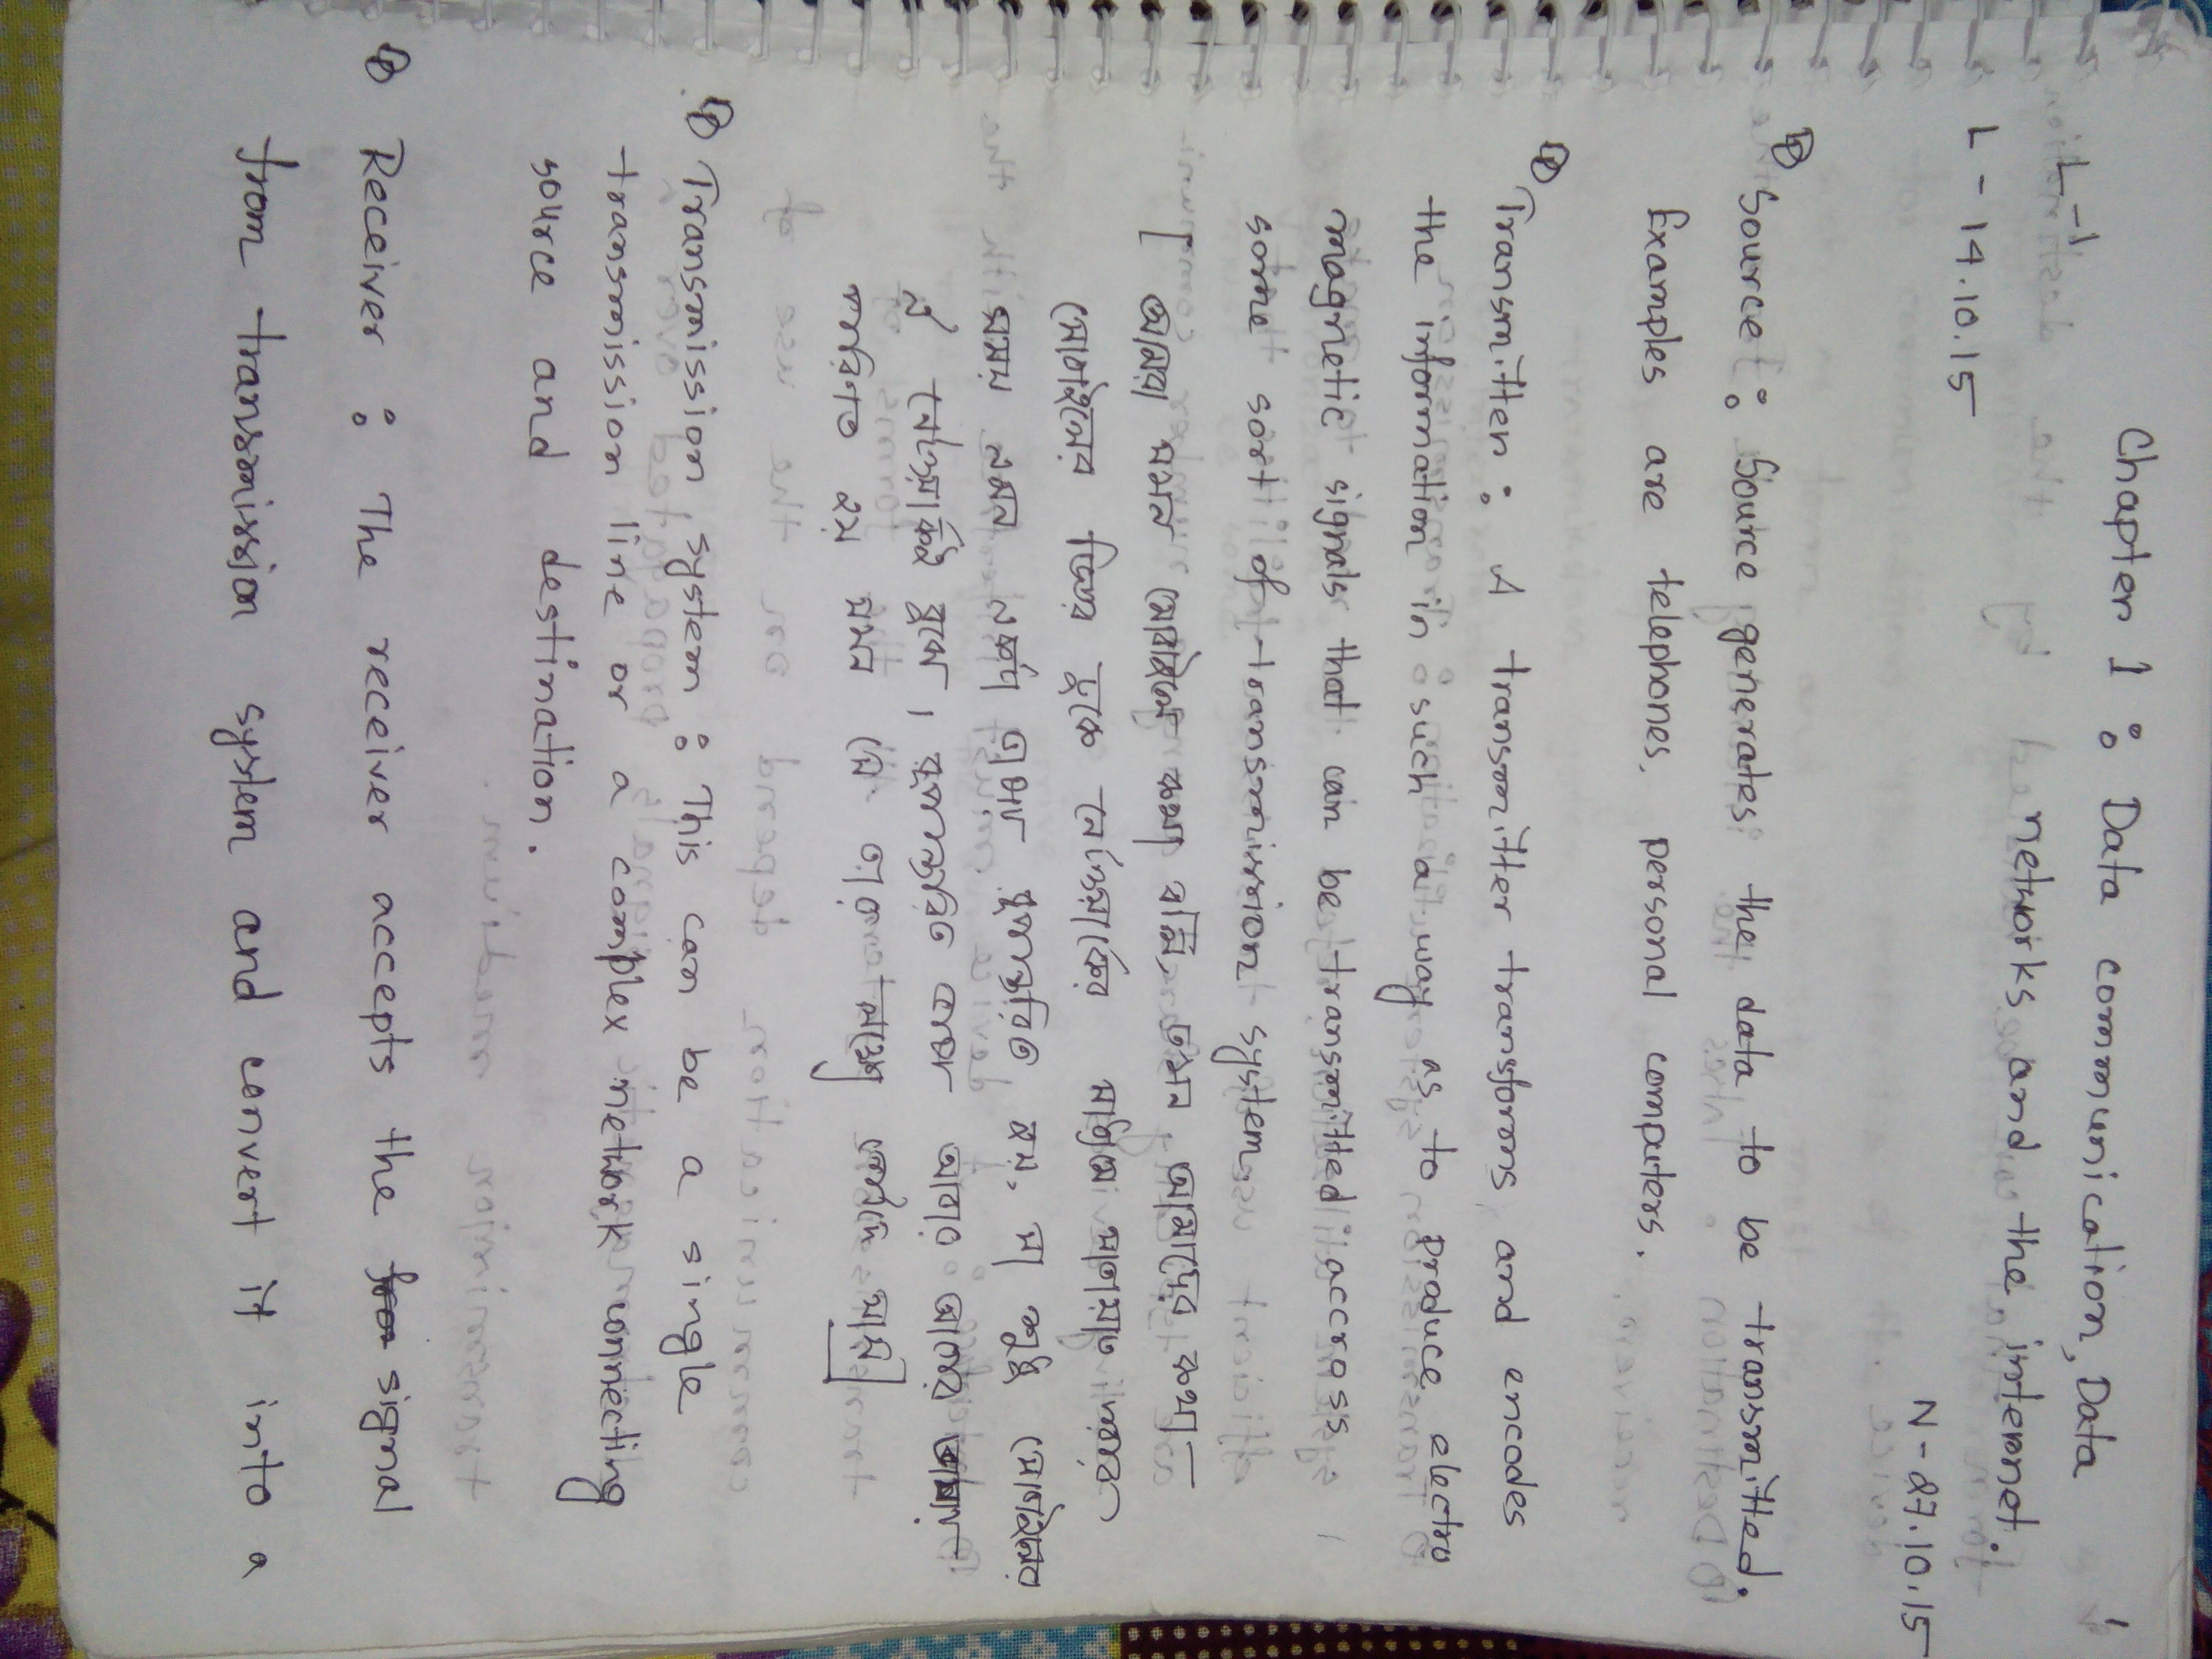 Chapter 1 : Data communication, Data
networks and the internet.
L-1
L - 14.10.15
N - 27.10.15
Source : Source generates the data to be transmitted.
Examples are telephones, personal computers.
Transmitter : A transmitter transforms and encodes
the information in such a way as to produce electro
magnetic signals that can be transmitted accross
some sort of transmission system.
[ আমরা যখন মোবাইলে কথা বলি, তখন আমাদের কথা
মোবাইলের ভিতর ঢুকে নেটওয়ার্কের মাধ্যমে যাতায়াত করার
সময় এমন একটা ভাষায় রূপান্তরিত হয়, যা শুধু মোবাইলের
ঐ নেটওয়ার্কই বুঝে। রূপান্তরিত ভাষা আবার আগের ভাষায়
পরিণত হয় যখন সে তার লক্ষ্যে পৌঁছে যায়]
Transmission system : This can be a single
transmission line or a complex network connecting
source and destination.
Receiver : The receiver accepts the signal
from transmission system and convert it into a